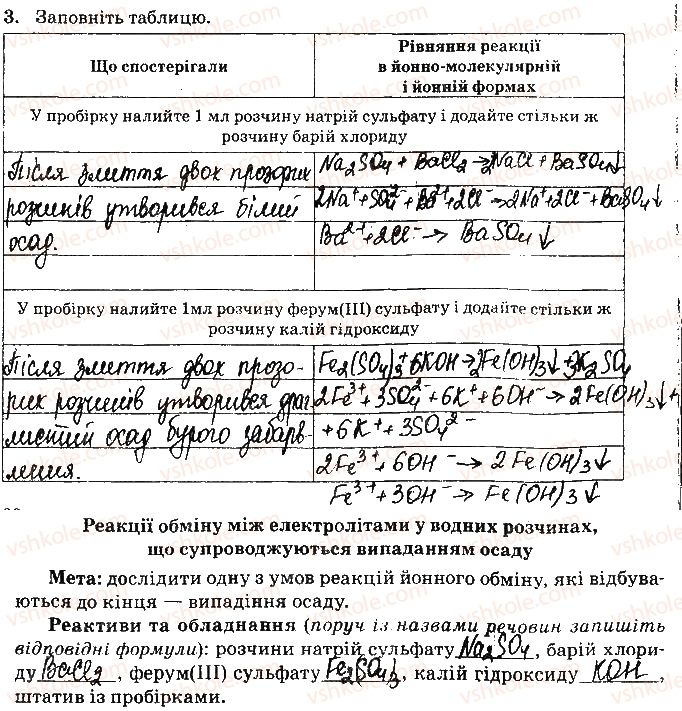 3. Заповніть таблицю.
Що спостерігали
Рівняння реакції
в йонно-молекулярній
і йонній формах
У пробірку налийте 1 мл розчину натрій сульфату і додайте стільки ж
розчину барій хлориду
Після злиття двох прозорих
розчинів утворився білий
осад.
Na₂SO₄ + BaCl₂ → 2NaCl + BaSO₄↓
2Na⁺+SO₄²⁻+Ba²⁺+2Cl⁻→2Na⁺+2Cl⁻+BaSO₄↓
Ba²⁺+2Cl⁻ → BaSO₄↓
У пробірку налийте 1мл розчину ферум(ІІІ) сульфату і додайте стільки ж
розчину калій гідроксиду
Після злиття двох прозо-
рих розчинів утворився драг-
листий осад бурого забарв-
лення.
Fe₂(SO₄)₃+6KOH→2Fe(OH)₃↓+3K₂SO₄
2Fe³⁺+3SO₄²⁻+6K⁺+6OH⁻→2Fe(OH)₃↓+
+6K⁺+3SO₄²⁻
2Fe³⁺+6OH⁻→2Fe(OH)₃↓
Fe³⁺+3OH⁻→Fe(OH)₃↓
Реакції обміну між електролітами у водних розчинах,
що супроводжуються випаданням осаду
Мета: дослідити одну з умов реакцій йонного обміну, які відбува-
ються до кінця — випадіння осаду.
Реактиви та обладнання (поруч із назвами речовин запишіть
відповідні формули): розчини натрій сульфату Na₂SO₄, барій хлори-
ду BaCl₂, ферум(ІІІ) сульфату Fe₂(SO₄)₃, калій гідроксиду KOH,
штатив із пробірками.
vshkole.com